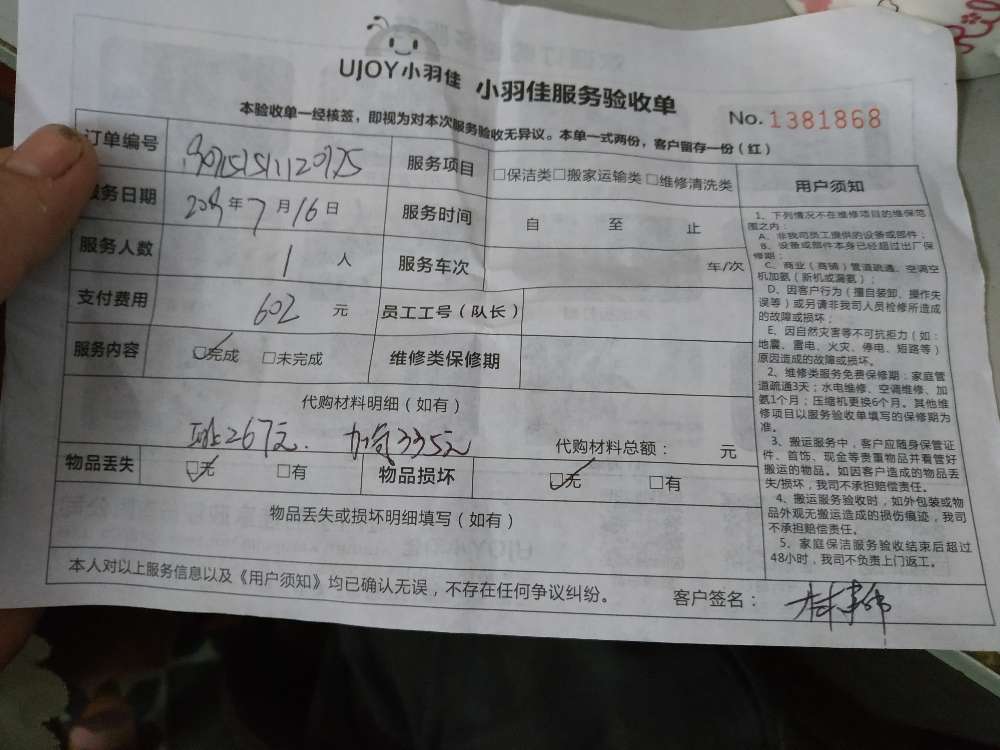 UJOY小羽佳 小羽佳服务验收单
No.1381868
本验收单一经核签，即视为对本次服务验收无异议。本单一式两份，客户留存一份（红）
订单编号 服务项目 □保洁类□搬家运输类□维修清洗类
服务日期 年7月16日 服务时间 自 至 止
服务人数 1人 服务车次 车/次
支付费用 602元 员工工号（队长）
服务内容 □完成 □未完成 维修类保修期
代购材料明细（如有）
267元. 加氨335元 代购材料总额： 元
物品丢失 □无 □有 物品损坏 □无 □有
物品丢失或损坏明细填写（如有）
本人对以上服务信息以及《用户须知》均已确认无误，不存在任何争议纠纷。 客户签名：
用户须知
1、下列情况不在维修项目的维保范
围之内：
A、非我司员工提供的设备或部件；
B、设备或部件本身已经超过出厂保
修期；
C、商业（商铺）管道疏通、空调空
机加氨（新机或漏氨）；
D、因客户行为（擅自装卸、操作失
误等）或另请非我司人员检修所造成
的故障或损坏；
E、因自然灾害等不可抗拒力（如：
地震、雷电、火灾、停电、短路等）
原因造成的故障或损坏。
2、维修类服务免费保修期：家庭管
道疏通3天；水电维修、空调维修、加
氨1个月；压缩机更换6个月。其他维
修项目以服务验收单填写的保修期为
准。
3、搬运服务中，客户应随身保管证
件、首饰、现金等贵重物品并看管好
搬运的物品。如因客户造成的物品丢
失/损坏，我司不承担赔偿责任。
4、搬运服务验收时，如外包装或物
品外观无搬运造成的损伤痕迹，我司
不承担赔偿责任。
5、家庭保洁服务验收结束后超过
48小时，我司不负责上门返工。